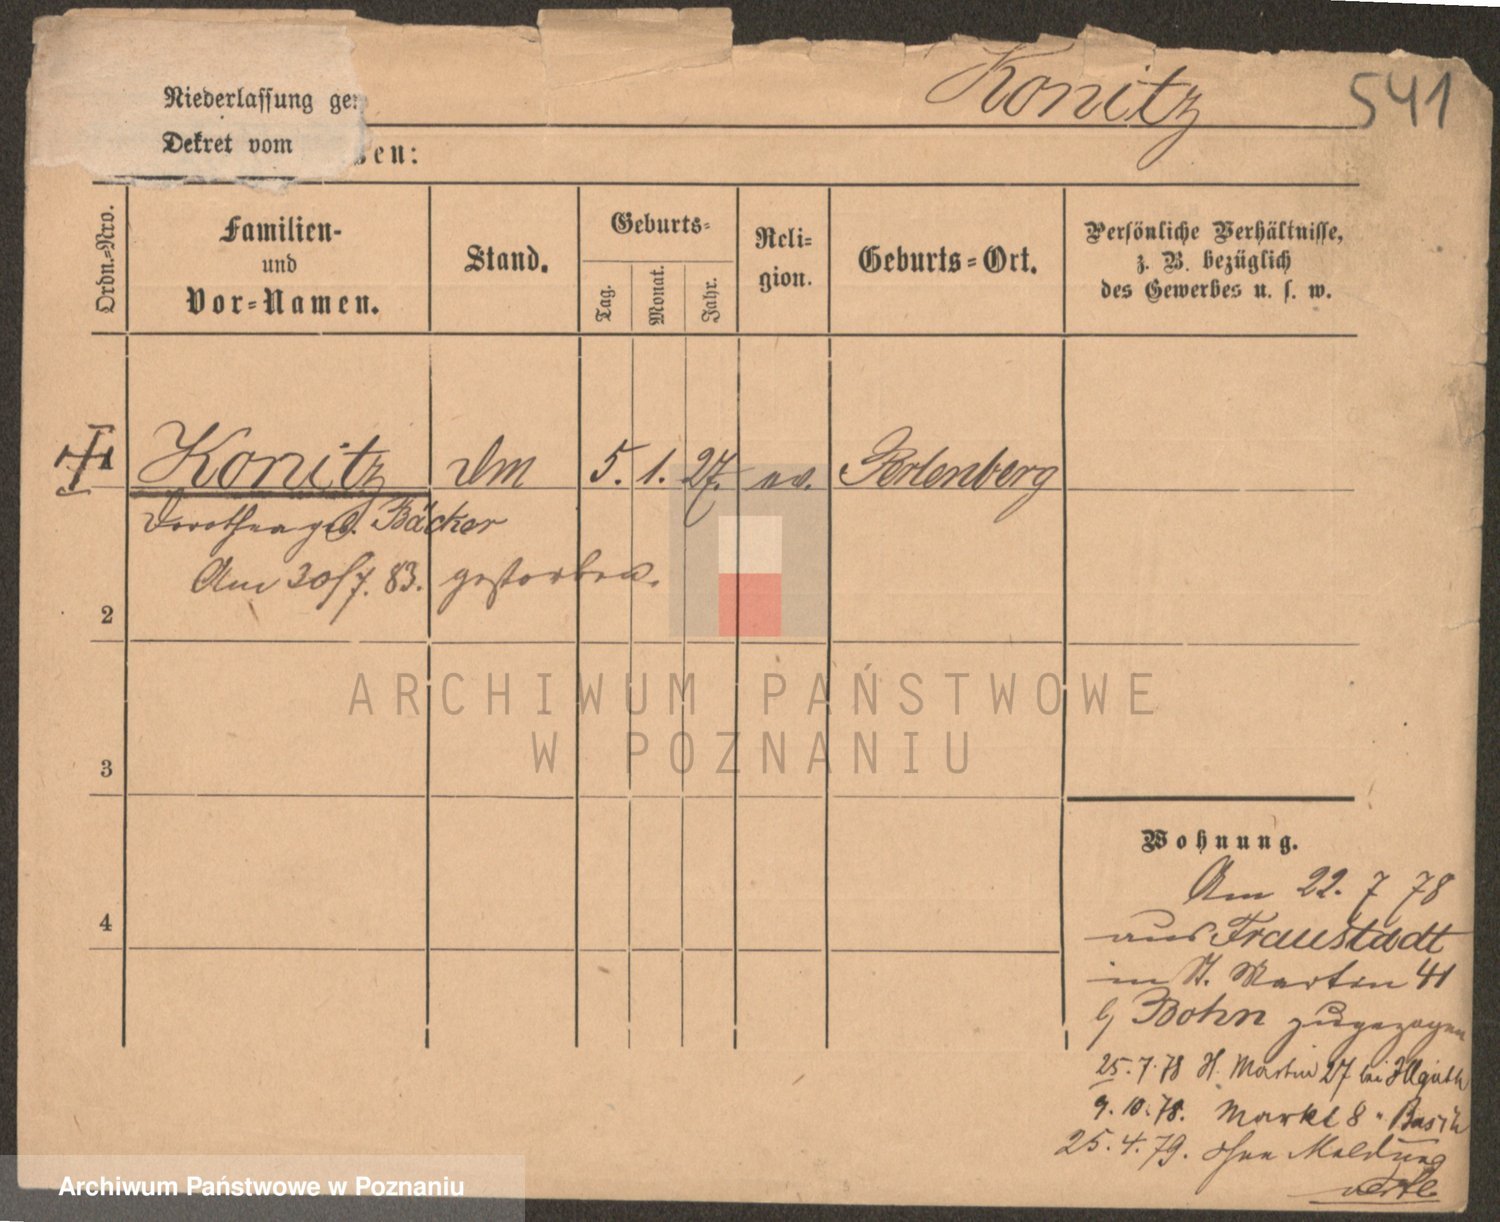 Konitz 541
Niederlassung gem
Dekret vom
sen:
Ordn.=Nro.
Familien-
und
Vor=Namen.
Stand.
Geburts=
Tag.
Monat.
Jahr.
Reli=
gion.
Geburts=Ort.
Persönliche Verhältnisse,
z. B. bezüglich
des Gewerbes u. s. w.
Konitz 5. 1. 27. ev.
Dorothea geb. Bäcker
Am 30/7. 83. gestorben.
2
ARCHIWUM PAŃSTWOWE
W POZNANIU
3
Wohnung.
4
Am 22. 7 78
aus Fraustadt
in St. Martin 41
b/ Bohn zugezogen
25. 7. 78 St. Martin 27 bei
9. 10. 78. Markt 8 "
25. 4. 79. ohne Meldung
Archiwum Państwowe w Poznaniu